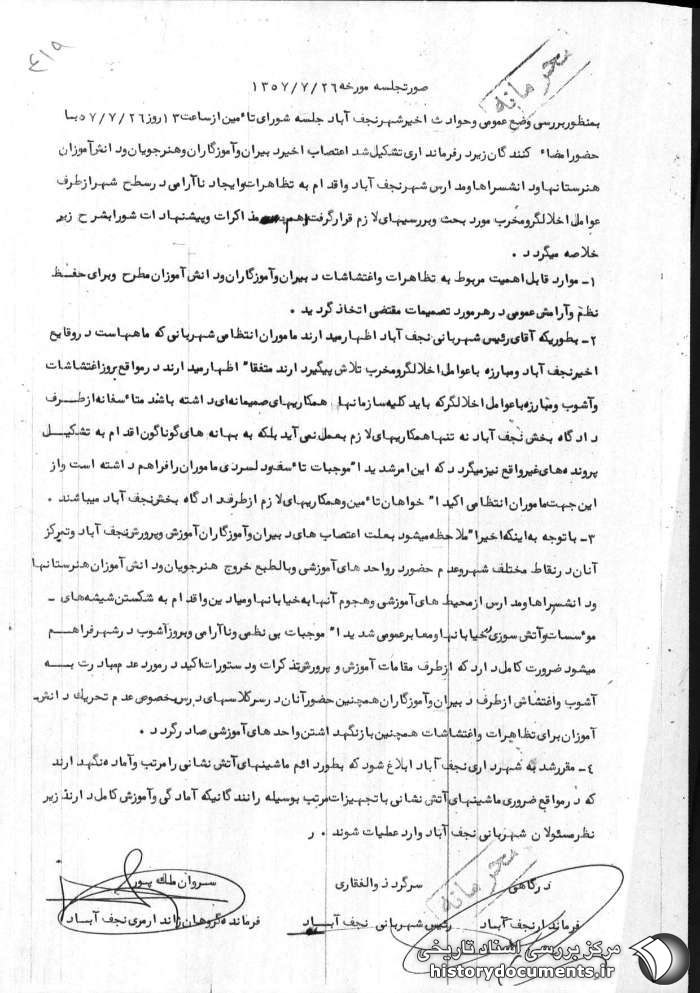 ۴۱۹
محرمانه
صورتجلسه مورخه ۱۳۵۷/۷/۲۶
بمنظور بررسی وضع عمومی وحوادث اخیر شهر نجف آباد جلسه شورای تأمین از ساعت ۱۳ روز ۵۷/۷/۲۶ با
حضور امضاء کنندگان زیر در فرمانداری تشکیل شد اعتصاب اخیر دبیران وآموزگاران وهنرجویان ودانش آموزان
هنرستانها ودانشسراها ومدارس شهر نجف آباد واقدام به تظاهرات وایجاد ناآرامی در سطح شهر از طرف
عوامل اخلالگر ومخرب مورد بحث وبررسیهای لازم قرار گرفت اهم مذاکرات وپیشنهادات شورا بشرح زیر
خلاصه میگردد .
۱- موارد قابل اهمیت مربوط به تظاهرات واغتشاشات دبیران وآموزگاران ودانش آموزان مطرح وبرای حفظ
نظم وآرامش عمومی در هر مورد تصمیمات مقتضی اتخاذ گردید .
۲- بطوریکه آقای رئیس شهربانی نجف آباد اظهار میدارند ماموران انتظامی شهربانی که ماههاست در وقایع
اخیر نجف آباد ومبارزه با عوامل اخلالگر ومخرب تلاش پیگیر دارند متفقا" اظهار میدارند در مواقع بروز اغتشاشات
وآشوب ومبارزه با عوامل اخلالگر که باید کلیه سازمانها همکاریهای صمیمانه ای داشته باشند متأسفانه از طرف
دادگاه بخش نجف آباد نه تنها همکاریهای لازم بعمل نمی آید بلکه به بهانه های گوناگون اقدام به تشکیل
پرونده های غیر واقع نیز میگردد که این امر شدیدا" موجبات تأسف ودلسردی ماموران را فراهم داشته است واز
این جهت ماموران انتظامی اکیدا" خواهان تأمین وهمکاریهای لازم از طرف دادگاه بخش نجف آباد میباشند .
۳- با توجه به اینکه اخیرا" ملاحظه میشود بعلت اعتصاب های دبیران وآموزگاران آموزش وپرورش نجف آباد وتمرکز
آنان در نقاط مختلف شهر وعدم حضور در واحدهای آموزشی وبالطبع خروج هنرجویان ودانش آموزان هنرستانها
ودانشسراها ومدارس از محیط های آموزشی وهجوم آنها به خیابانها ومیادین واقدام به شکستن شیشه های -
موسسات وآتش سوزی خیابانها ومعابر عمومی شدیدا" موجبات بی نظمی وناآرامی وبروز آشوب در شهر فراهم
میشود ضرورت کامل دارد که از طرف مقامات آموزش وپرورش تذکرات ودستورات اکید در مورد عدم مبادرت به
آشوب واغتشاش از طرف دبیران وآموزگاران همچنین حضور آنان در سر کلاسهای درس بخصوص عدم تحریک دانش
آموزان برای تظاهرات واغتشاشات همچنین باز نگهداشتن واحدهای آموزشی صادر گردد .
۴- مقرر شد به شهرداری نجف آباد ابلاغ شود که بطور دائم ماشینهای آتش نشانی را مرتب وآماده نگهدارند
که در مواقع ضروری ماشینهای آتش نشانی با تجهیزات مرتب بوسیله رانندگانیکه آمادگی وآموزش کامل دارند زیر
نظر مسئولان شهربانی نجف آباد وارد عملیات شوند . ر
محرمانه
درگاهی سرگرد ذوالفقاری سروان ملک پور
فرماندار نجف آباد رئیس شهربانی نجف آباد فرمانده گروهان ژاندارمری نجف آباد
مرکز بررسی اسناد تاریخی
historydocuments.ir